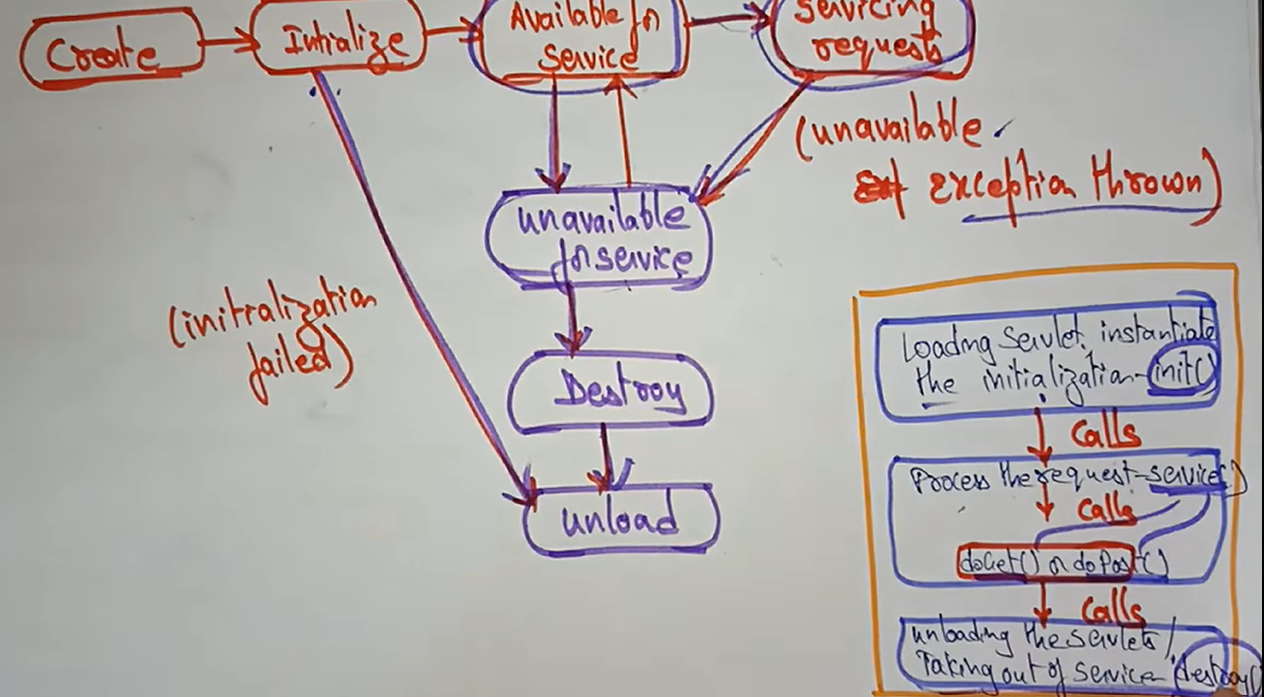 Create
Intialize
Available for
Service
Servicing
requests
(unavailable
exception thrown)
unavailable
for service
(initialization
failed)
Destroy
unload
Loading Servlet, instantiate
the initialization-init()
Calls
Process the request-service()
Calls
doGet() or doPost()
Calls
unloading the servlets /
Taking out of service-destroy()